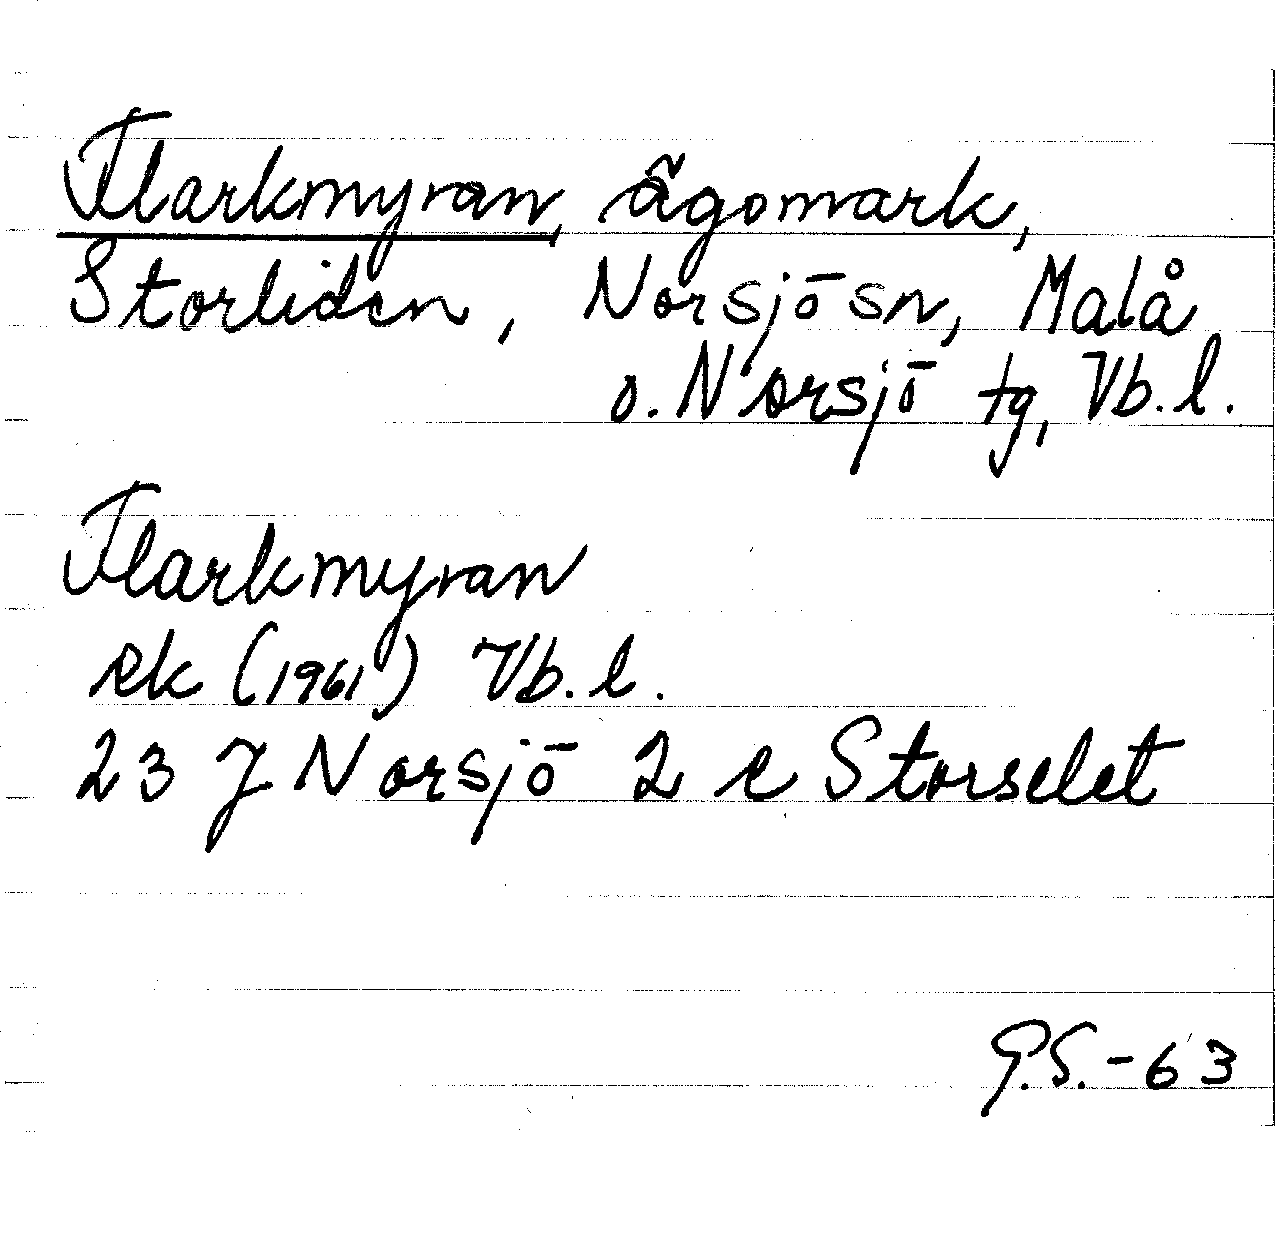 Flarkmyran, ägomark,
Storliden, Norsjö sn, Malå
o. Norsjö tg, Vb. l.
Flarkmyran
ek (1961) Vb. l.
23 J Norsjö 2 c Storselet
G.S. - 63